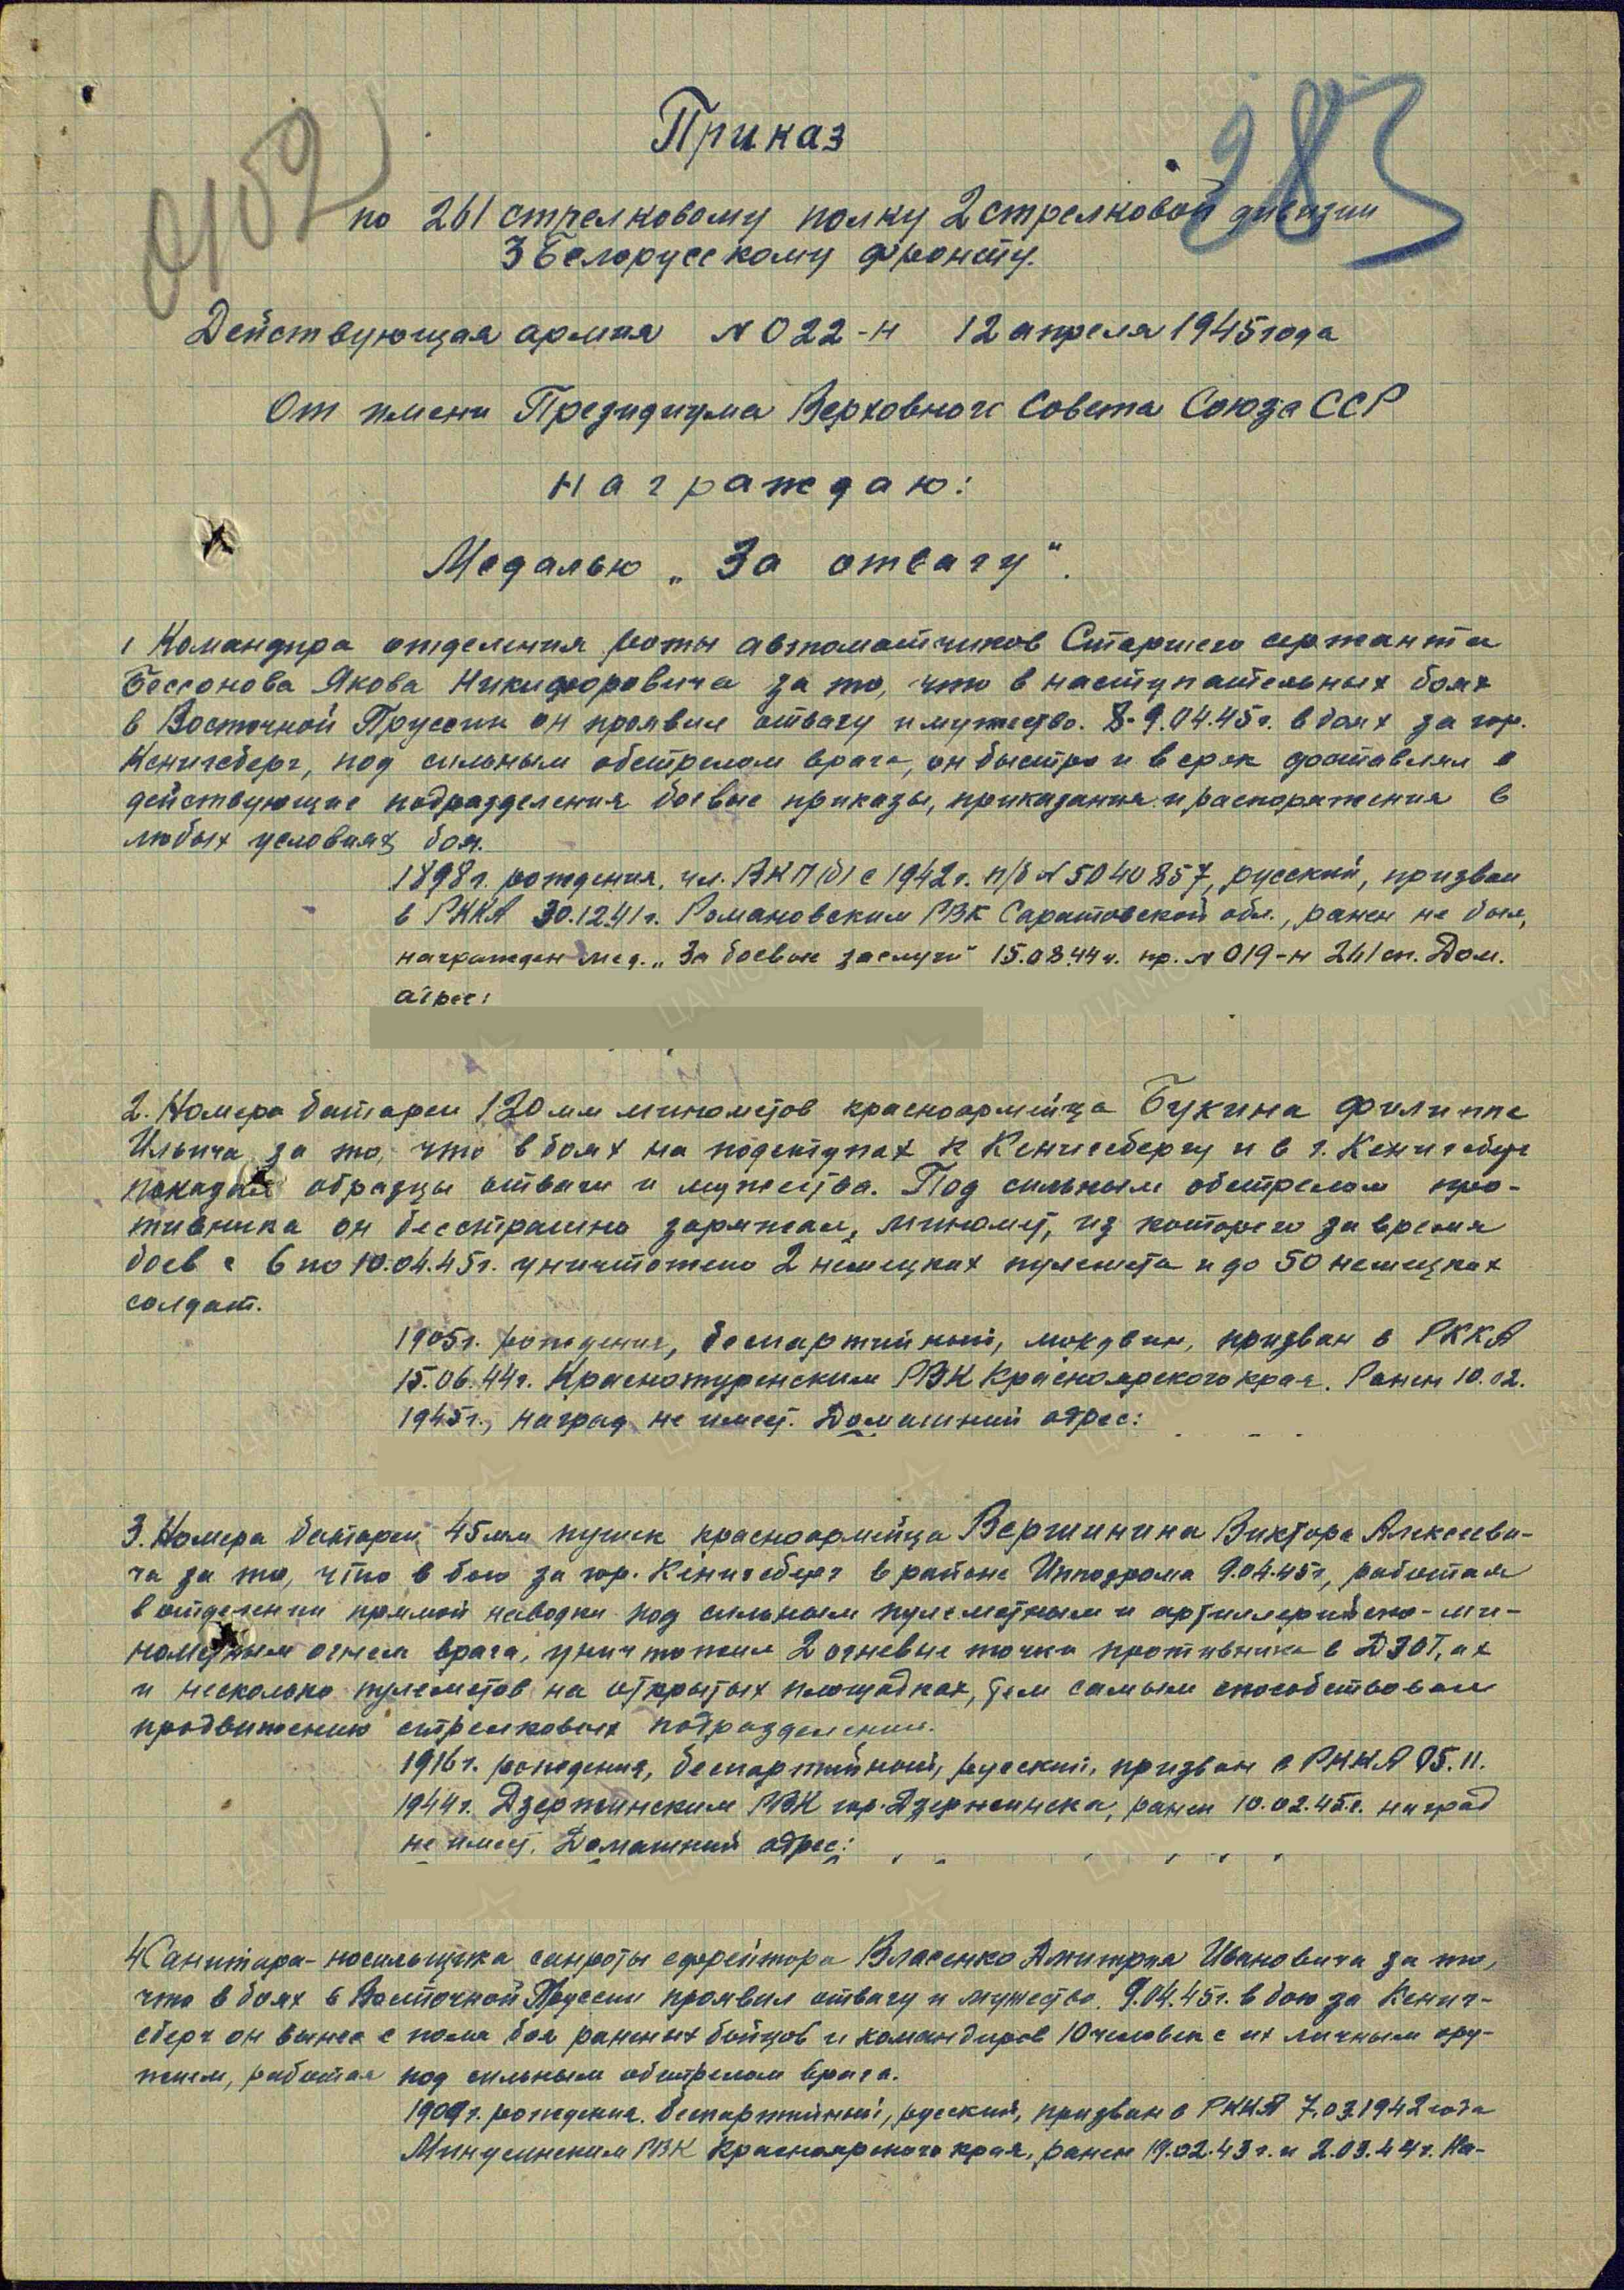 0102
283
Приказ
по 261 стрелковому полку 2 стрелковой дивизии
3 Белорусскому фронту.
Действующая армия № 022-н 12 апреля 1945 года
От имени Президиума Верховного Совета Союза ССР
награждаю:
Медалью „За отвагу“.
1 Командира отделения роты автоматчиков Старшего сержанта
Бессонова Якова Никифоровича за то, что в наступательных боях
в Восточной Пруссии он проявил отвагу и мужество. 8-9.04.45г. в боях за гор.
Кенигсберг, под сильным обстрелом врага, он быстро и в срок доставлял в
действующие подразделения боевые приказы, приказания и распоряжения в
любых условиях боя.
1898г. рождения, чл. ВКП(б) с 1942г. п/б № 5040857, русский, призван
в РККА 30.12.41г. Романовским РВК Саратовской обл., ранен не был,
награжден мед. „За боевые заслуги“ 15.08.44г. пр. № 019-н 261 сп. Дом.
адрес:
2. Номера батареи 120 мм минометов красноармейца Букина Филиппа
Ильича за то, что в боях на подступах к Кенигсбергу и в г. Кенигсберг
показал образцы отваги и мужества. Под сильным обстрелом про-
тивника он бесстрашно заряжал, миномет, из которого за время
боев с 6 по 10.04.45г. уничтожено 2 немецких пулемета и до 50 немецких
солдат.
1905г. рождения, беспартийный, мордвин, призван в РККА
15.06.44г. Краснотуренским РВК Красноярского края. Ранен 10.02.
1945г., наград не имеет. Домашний адрес:
3. Номера батареи 45мм пушек красноармейца Вершинина Виктора Алексееви-
ча за то, что в бою за гор. Кенигсберг в районе Ипподрома 9.04.45г, работая
в отделении прямой наводки под сильным пулеметным и артиллерийско-ми-
нометным огнем врага, уничтожил 2 огневые точки противника в ДЗОТ,ах
и несколько пулеметов на открытых площадках, тем самым способствовал
продвижению стрелковых подразделений.
1916г. рождения, беспартийный, русский, призван в РККА 05.11.
1944г. Дзержинским РВК гор. Дзержинска, ранен 10.02.45г. наград
не имеет. Домашний адрес:
4 Санитара-носильщика санроты ефрейтора Власенко Дмитрия Ивановича за то,
что в боях в Восточной Пруссии проявил отвагу и мужество. 9.04.45г. в бою за Кениг-
сберг он вынес с поля боя раненых бойцов и командиров 10 человек с их личным ору-
жием, работая под сильным обстрелом врага.
1909г. рождения. беспартийный, русский, призван в РККА 7.03.1942 года
Минусинским РВК Красноярского края, ранен 19.02.43г. и 2.03.44г. На-